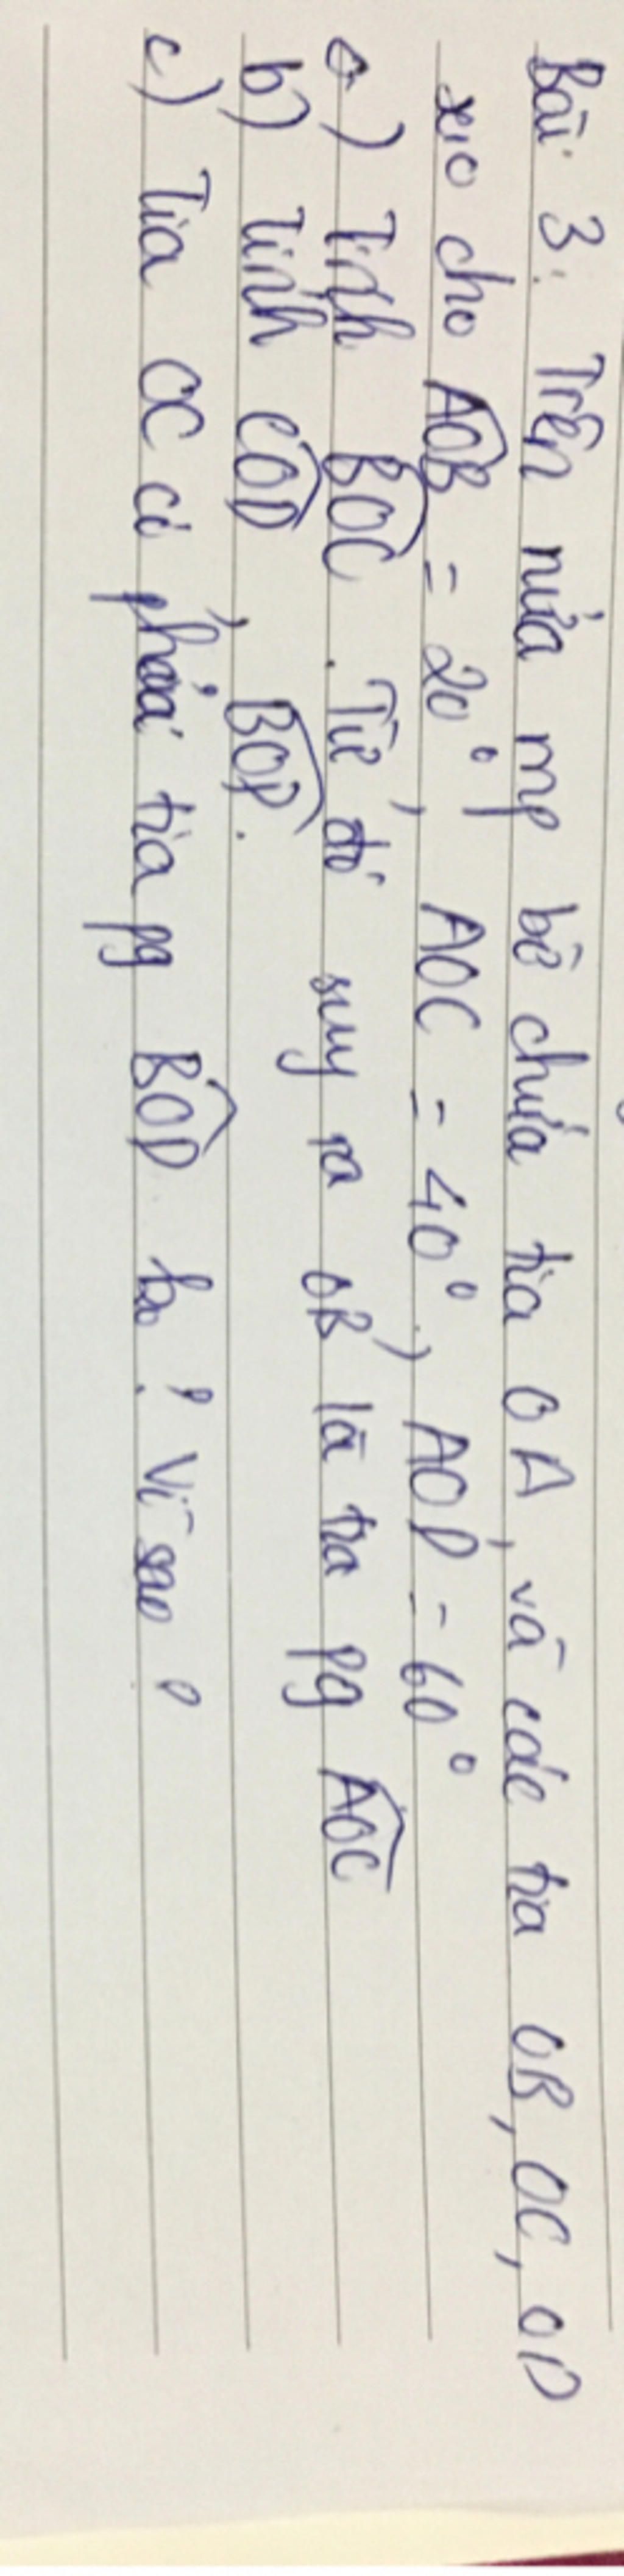 Bài 3: Trên nửa mp bờ chứa tia OA, vẽ các tia OB, OC, OD
sao cho AOB = 20°, AOC = 40°, AOD = 60°
a) Tính BOC. Từ đó suy ra OB là tia pg AOC
b) Tính COD, BOD.
c) Tia OC có phải tia pg BOD ko? Vì sao?